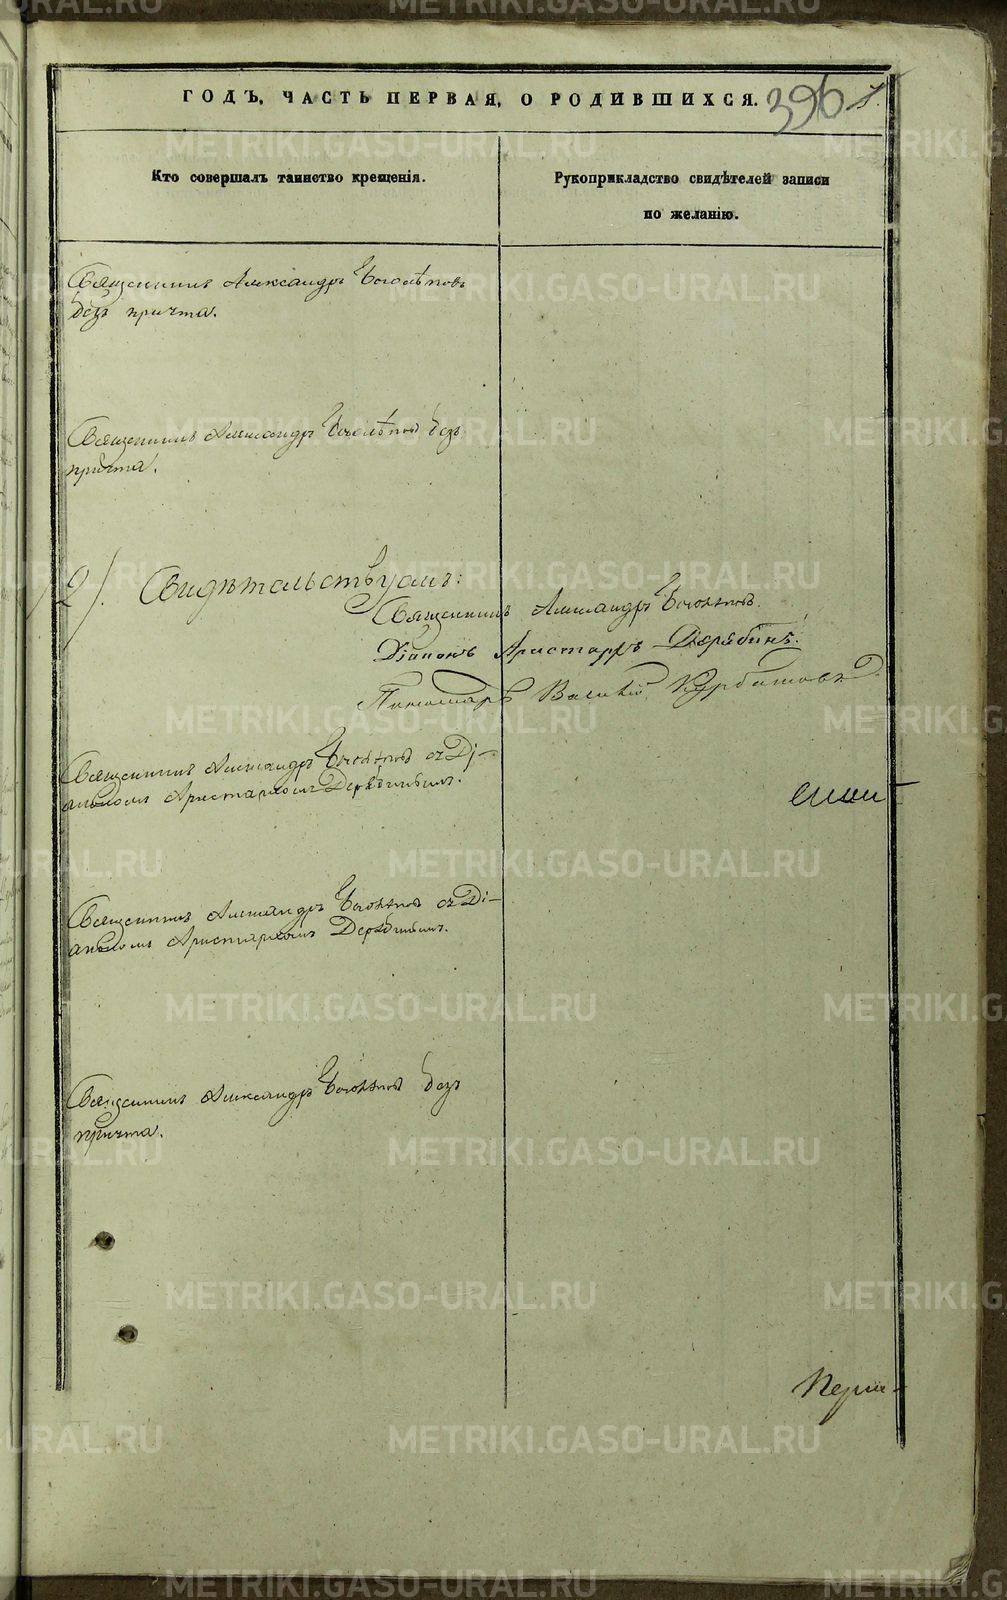 ГОДЪ, ЧАСТЬ ПЕРВАЯ, О РОДИВШИХСЯ.
396
Кто совершалъ таинство крещенія.
Рукоприкладство свидѣтелей записи
по желанію.
Священникъ Александръ
безъ причта.
Священникъ Александръ безъ
причта.
2). Свидѣтельствуемъ:
Священникъ Александръ
Діаконъ Аристархъ Дерябинъ.
Пономарь Василій Курбатовъ
Священникъ Александръ съ Ді-
акономъ Аристархомъ Дерябинымъ.
Священникъ Александръ съ Ді-
акономъ Аристархомъ Дерябинымъ.
Священникъ Александръ безъ
причта.
METRIKI.GASO-URAL.RU